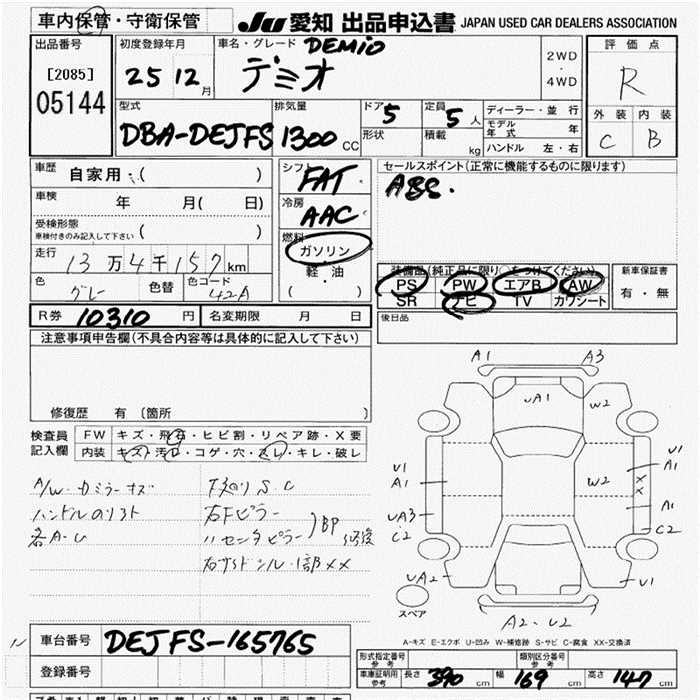 車内保管・守衛保管 JU 愛知 出品申込書 JAPAN USED CAR DEALERS ASSOCIATION
出品番号 初度登録年月 車名・グレード DEMIO 評価点
[2085] 25 12月 デミオ 2WD・4WD R
05144 型式 排気量 ドア 5 定員 5人 ディーラー・並行 外装 内装
DBA-DEJFS 1300 CC 形状 積載 kg モデル年式 年 C B
ハンドル 左・右
車歴 自家用・( ) シフト FAT セールスポイント(正常に機能するものに限ります)
車検 年 月( 日) 冷房 AAC ABS.
受検形態 ( )
車検付きのみ記入して下さい 燃料
走行 13万4千157km ガソリン 装備品(純正品に限り○をつけてください) 新車保証書
色 グレー 色替 色コード 42A 軽・油 PS PW エアB AW 有・無
( ) SR ナビ TV カワシート
R券 10310円 名変期限 月 日 後日品
注意事項申告欄(不具合内容等は具体的に記入して下さい)
修復歴 有(箇所 )
検査員 FW キズ・飛石・ヒビ割・リペア跡・X要
記入欄 内装 キズ・汚れ・コゲ・穴・スレ・キレ・破レ
A/W・カミラーキズ 下廻りSC
ハンドルのリフト 右Fピラー
各A-U 〃センタピラー )BP
右サイドシル・1部XX
A1 A3
UA1 W2
U1 U1
A1 W2 A1
X
X
UA3 A1
C2 C2
UA2 U1
スペア A2-U2
A-キズ E-エクボ U-凹み W-補修跡 S-サビ C-腐食 XX-交換済
車台番号 DEJFS-165765
登録番号
形式指定番号 参考 類別区分番号 参考
車庫証明用 参考 長さ 390cm 幅 169cm 高さ 147cm